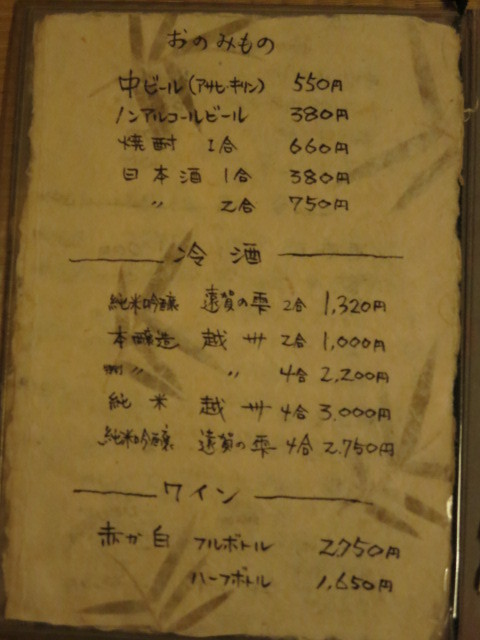 おのみもの
中ビール(アサヒ・キリン) 550円
ノンアルコールビール 380円
焼酎 1合 660円
日本酒 1合 380円
〃 2合 750円
冷酒
純米吟醸 遠賀の雫 2合 1,320円
本醸造 越州 2合 1,000円
〃 〃 4合 2,200円
純米 越州 4合 3,000円
純米吟醸 遠賀の雫 4合 2,750円
ワイン
赤か白 フルボトル 2,750円
ハーフボトル 1,650円